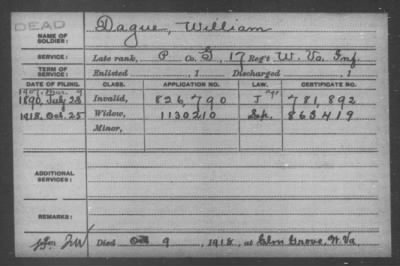 DEAD
NAME OF SOLDIER: Dague, William
SERVICE: Late rank, P Co. G, 17 Reg't W. Va. Inf.
TERM OF SERVICE: Enlisted , 1 Discharged , 1
DATE OF FILING. CLASS. APPLICATION NO. LAW. CERTIFICATE NO.
1890, July 28 Invalid, 826,790 J 781,892
1918, Oct. 25 Widow, 1130210 863419
Minor,
ADDITIONAL SERVICES:
REMARKS:
Died Oct 9, 1918, at Elm Grove, W. Va